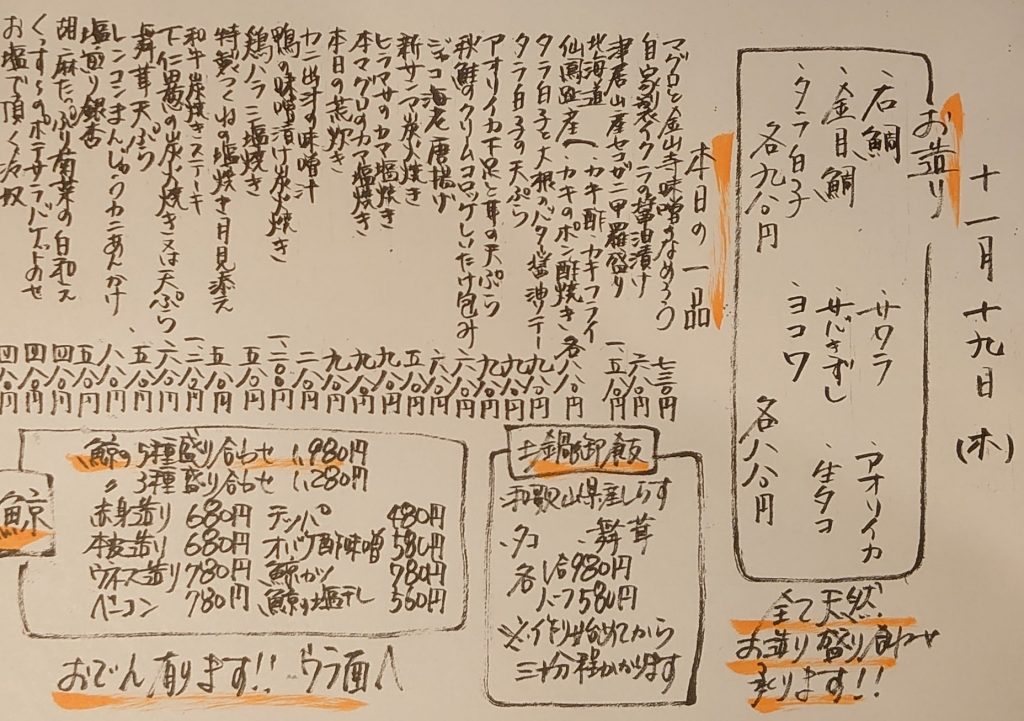 十一月十九日(木)
お造り
・石鯛
・金目鯛
・タラ白子
各九八〇円
・サワラ
・サバきずし
・ヨコワ
・アオリイカ
・生タコ
各八八〇円
全て天然
お造り盛り合わせ
承ります!!
本日の一品
マグロと金山寺味噌のなめろう 七三〇円
自家製イクラの醤油漬け 六八〇円
津居山産セコガニ甲羅盛り 一、五八〇円
北海道 カキ酢 カキフライ
仙鳳趾産 カキのポン酢焼き 各八八〇円
タラ白子と大根のバター醤油ソテー 九八〇円
タラ白子の天ぷら 九八〇円
アオリイカ下足と茸の天ぷら 九八〇円
秋鮭のクリームコロッケしいたけ包み 六八〇円
ジャコ海老唐揚げ 六八〇円
新サンマ炭火焼き 五八〇円
ヒラマサのカマ塩焼き 九八〇円
本マグロのカマ塩焼き 九八〇円
本日の荒炊き 九八〇円
カニ出汁の味噌汁 二八〇円
鴨の味噌漬け炭火焼き 一、二八〇円
鶏ハラミ塩焼き 五八〇円
特製つくねの塩焼き月見添え 五八〇円
和牛炭焼きステーキ 一、三八〇円
下仁田葱の炭火焼き又は天ぷら 六八〇円
舞茸天ぷら 五八〇円
レンコンまんじゅうカニあんかけ 八八〇円
塩煎り銀杏 五八〇円
胡麻たっぷり菊菜の白和え 四八〇円
くんすらのポテサラバゲットのせ 四八〇円
お塩で頂く冷奴 四八〇円
土鍋御飯
・和歌山県産しらす
・タコ ・舞茸
各 1合980円
ハーフ580円
※作り始めてから
三十分程かかります
鯨
鯨の5種盛り合わせ 1,980円
〃 3種盛り合わせ 1,280円
赤身造り 680円 テッパ 480円
本皮造り 680円 オバケ酢味噌 580円
ウネス造り 780円 鯨カツ 780円
ベーコン 780円 鯨の塩干し 560円
おでん有ります!! ウラ面へ